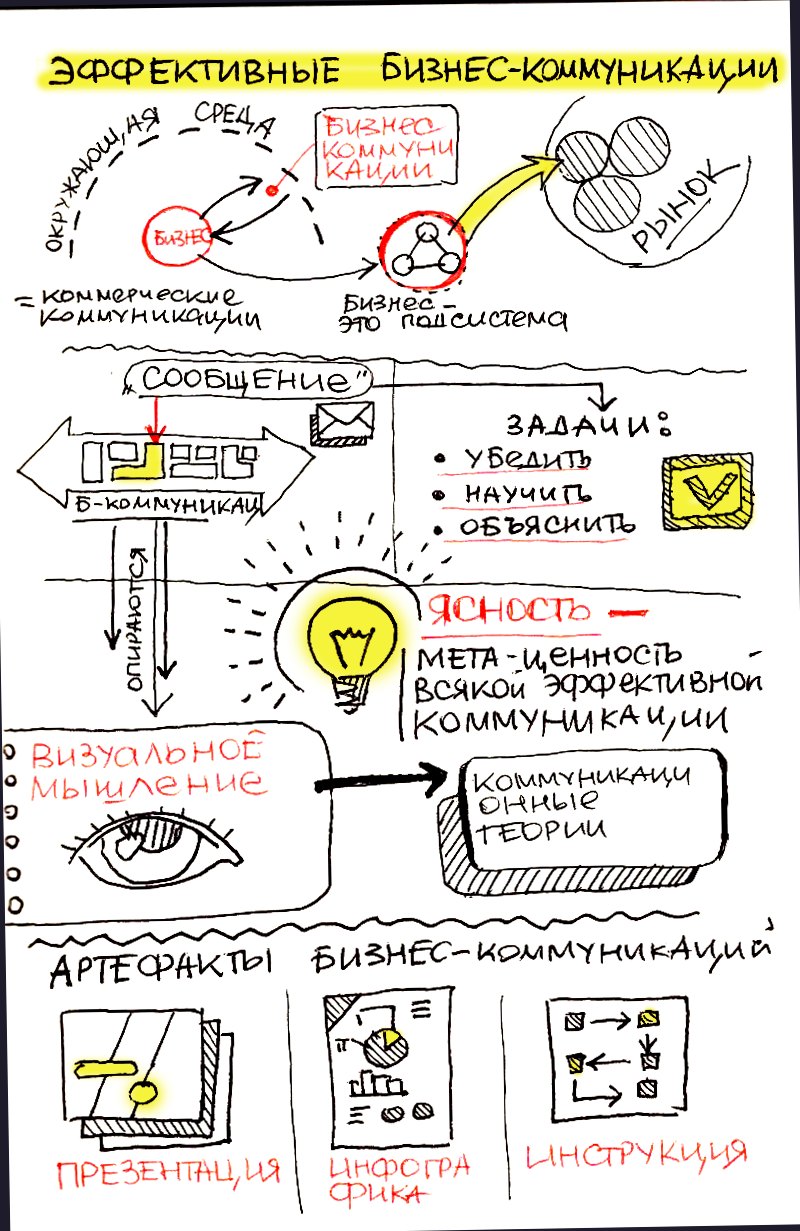 ЭФФЕКТИВНЫЕ БИЗНЕС-КОММУНИКАЦИИ
ОКРУЖАЮЩАЯ СРЕДА
БИЗНЕС
КОММУНИ
КАЦИИ
БИЗНЕС
РЫНОК
= КОММЕРЧЕСКИЕ
КОММУНИКАЦИИ
БИЗНЕС –
ЭТО ПОДСИСТЕМА
„СООБЩЕНИЕ"
Б-КОММУНИКАЦ
ЗАДАЧИ:
• УБЕДИТЬ
• НАУЧИТЬ
• ОБЪЯСНИТЬ
ОПИРАЮТСЯ
ЯСНОСТЬ –
МЕТА-ЦЕННОСТЬ
ВСЯКОЙ ЭФФЕКТИВНОЙ
КОММУНИКАЦИИ
ВИЗУАЛЬНОЕ
МЫШЛЕНИЕ
КОММУНИКАЦИ
ОННЫЕ
ТЕОРИИ
АРТЕФАКТЫ БИЗНЕС-КОММУНИКАЦИЙ
ПРЕЗЕНТАЦИЯ
ИНФОГРА
ФИКА
ИНСТРУКЦИЯ